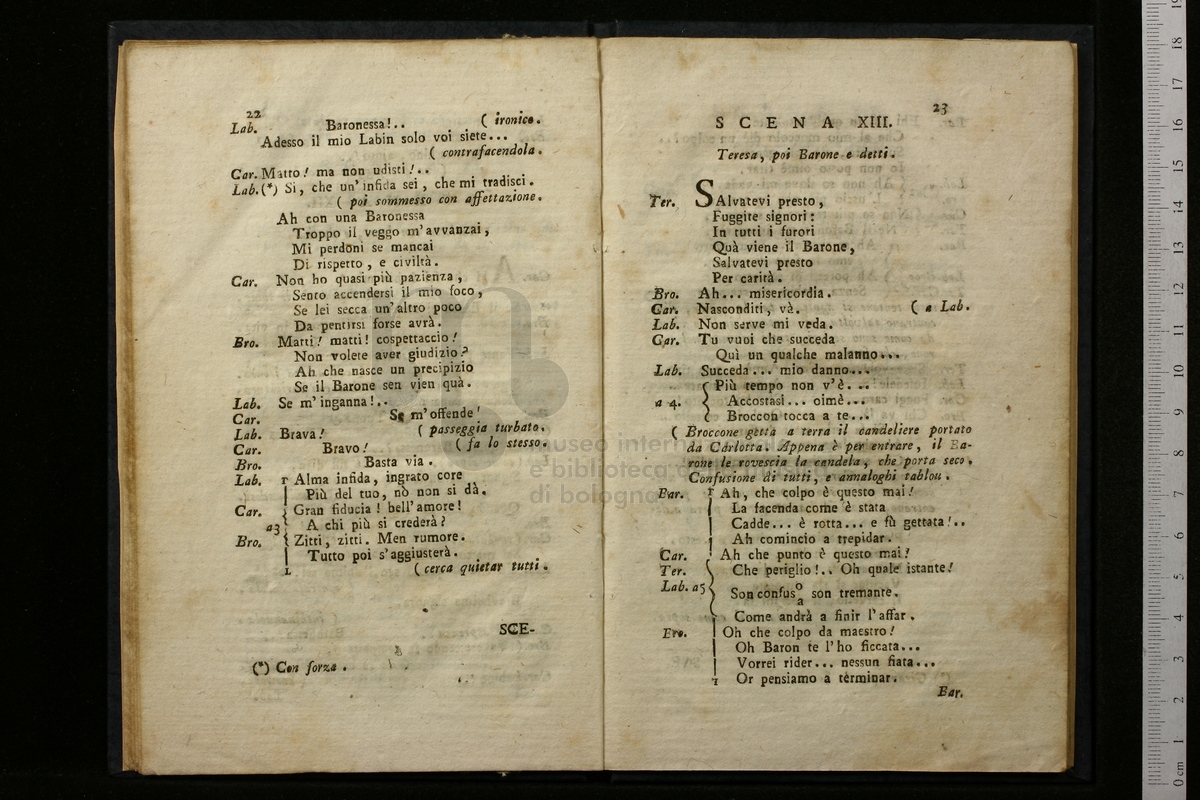 22
Lab. Baronessa!.. ( ironico.
Adesso il mio Labin solo voi siete...
( contrafacendola.
Car. Matto! ma non udisti!..
Lab.(*) Sì, che un' infida sei, che mi tradisci.
( poi sommesso con affettazione.
Ah con una Baronessa
Troppo il veggo m'avvanzai,
Mi perdoni se mancai
Di rispetto, e civiltà.
Car. Non ho quasi più pazienza,
Sento accendersi il mio foco,
Se lei secca un' altro poco
Da pentirsi forse avrà.
Bro. Matti! matti! cospettaccio!
Non volete aver giudizio?
Ah che nasce un precipizio
Se il Barone sen vien quà.
Lab. Se m'inganna!..
Car. Se m'offende!
Lab. Brava! ( passeggia turbato.
Car. Bravo! ( fa lo stesso.
Bro. Basta via.
Lab. Alma infida, ingrato core
Più del tuo, nò non si dà.
Car. Gran fiducia! bell'amore!
a3 A chi più si crederà?
Bro. Zitti, zitti. Men rumore.
Tutto poi s'aggiusterà.
( cerca quietar tutti.
SCE-
(*) Con forza.
23
SCENA XIII.
Teresa, poi Barone e detti.
Ter. SAlvatevi presto,
Fuggite signori:
In tutti i furori
Quà viene il Barone,
Salvatevi presto
Per carità.
Bro. Ah... misericordia.
Car. Nasconditi, và. ( a Lab.
Lab. Non serve mi veda.
Car. Tu vuoi che succeda
Quì un qualche malanno...
Lab. Succeda... mio danno...
Più tempo non v'è...
a 4. Accostasi... oimè...
Broccon tocca a te...
( Broccone getta a terra il candeliere portato
da Carlotta. Appena è per entrare, il Ba-
rone le rovescia la candela, che porta seco.
Confusione di tutti, e annaloghi tablou.
Bar. Ah, che colpo è questo mai!
La facenda come è stata
Cadde... è rotta... e fù gettata!..
Ah comincio a trepidar.
Car. Ah che punto è questo mai!
Ter. Che periglio!.. Oh quale istante!
Lab. a5 Son confuso/a son tremante.
Come andrà a finir l'affar.
Bro. Oh che colpo da maestro!
Oh Baron te l'ho ficcata...
Vorrei rider... nessun fiata...
Or pensiamo a terminar.
Bar.
museo internazionale
e biblioteca della musica
di bologna